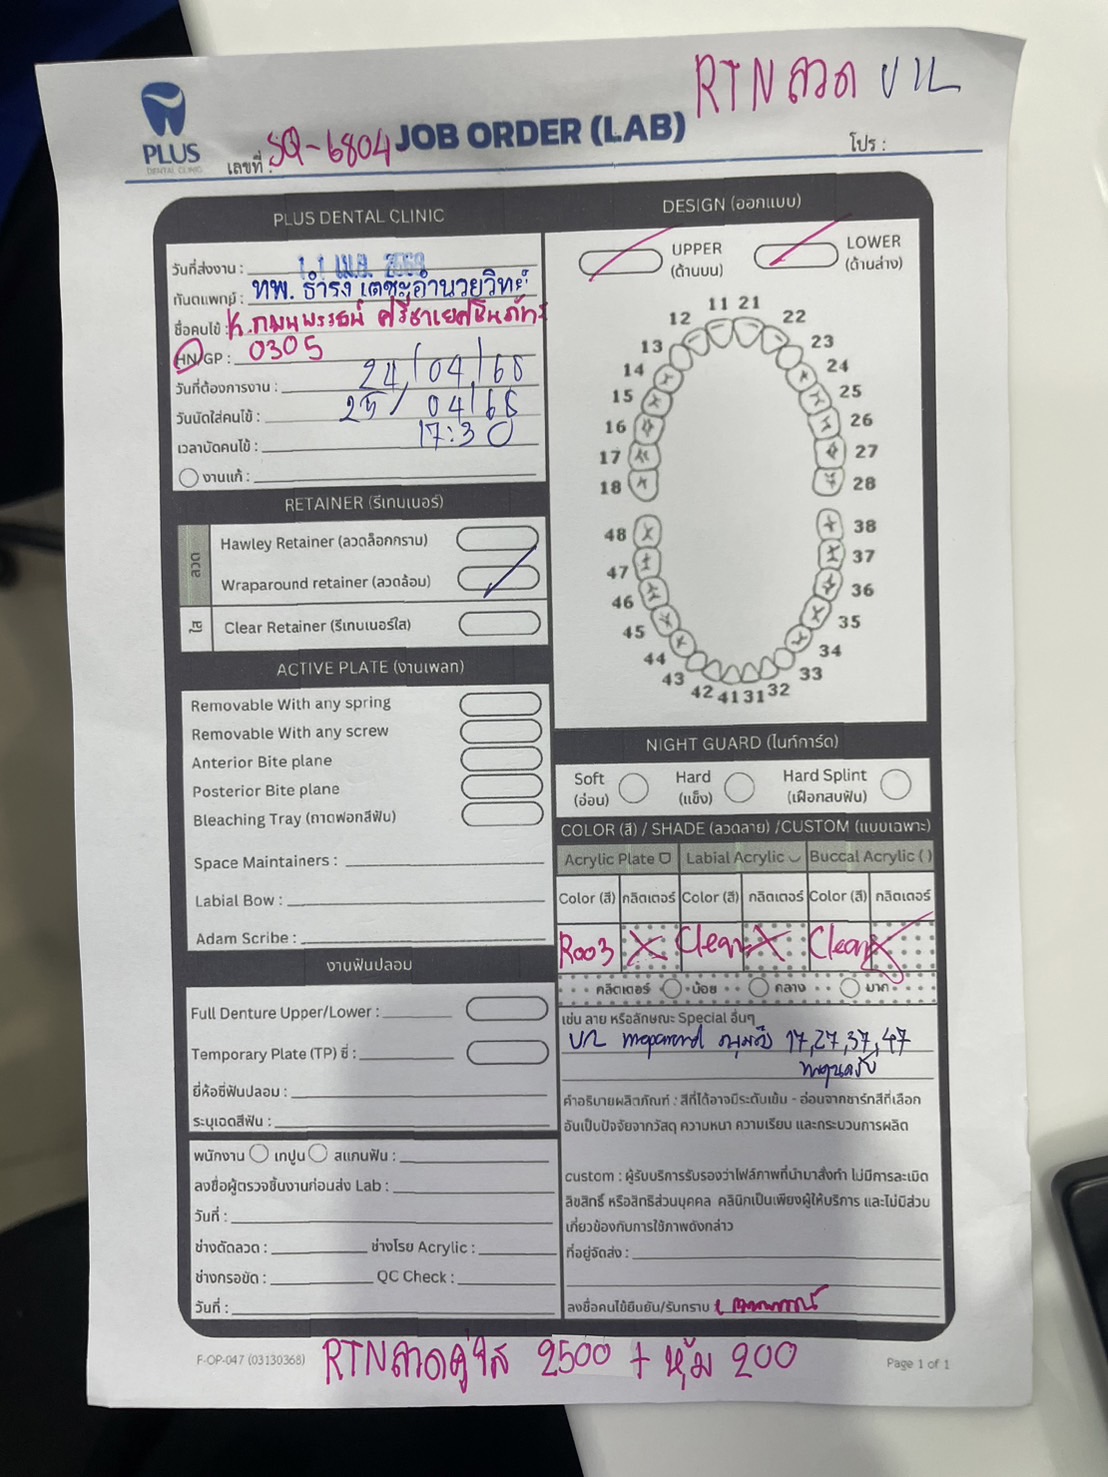 RTN ลวด U/L
PLUS
DENTAL CLINIC
เลขที่ : SQ-6804
JOB ORDER (LAB)
โปร :
PLUS DENTAL CLINIC
วันที่ส่งงาน : 11 เม.ย. 2568
ทันตแพทย์ : ทพ. ธำรง เตชะอำนวยวิทย์
ชื่อคนไข้ : K.
HN/GP : 0305
วันที่ต้องการงาน : 24/04/68
วันนัดใส่คนไข้ : 25/04/68
เวลานัดคนไข้ : 17:30
งานแก้ :
RETAINER (รีเทนเนอร์)
ลวด
Hawley Retainer (ลวดล็อกกราม)
Wraparound retainer (ลวดล้อม)
ใส
Clear Retainer (รีเทนเนอร์ใส)
ACTIVE PLATE (งานเพลท)
Removable With any spring
Removable With any screw
Anterior Bite plane
Posterior Bite plane
Bleaching Tray (ถาดฟอกสีฟัน)
Space Maintainers :
Labial Bow :
Adam Scribe :
งานฟันปลอม
Full Denture Upper/Lower :
Temporary Plate (TP) ซี่ :
ยี่ห้อซี่ฟันปลอม :
ระบุเฉดสีฟัน :
พนักงาน เทปูน สแกนฟัน :
ลงชื่อผู้ตรวจชิ้นงานก่อนส่ง Lab :
วันที่ :
ช่างดัดลวด : ช่างโรย Acrylic :
ช่างกรอขัด : QC Check :
วันที่ :
DESIGN (ออกแบบ)
UPPER (ด้านบน)
LOWER (ด้านล่าง)
11 21
12 22
13 23
14 24
15 25
16 26
17 27
18 28
48 38
47 37
46 36
45 35
44 34
43 33
42 41 31 32
NIGHT GUARD (ไนท์การ์ด)
Soft (อ่อน)
Hard (แข็ง)
Hard Splint (เฝือกสบฟัน)
COLOR (สี) / SHADE (ลวดลาย) /CUSTOM (แบบเฉพาะ)
Acrylic Plate Labial Acrylic Buccal Acrylic ( )
Color (สี) กลิตเตอร์ Color (สี) กลิตเตอร์ Color (สี) กลิตเตอร์
R003 X Clear X Clear X
กลิตเตอร์ น้อย กลาง มาก
เช่น ลาย หรือลักษณะ Special อื่นๆ
U/L 17, 27, 37, 47
คำอธิบายผลิตภัณฑ์ : สีที่ได้อาจมีระดับเข้ม - อ่อนจากชาร์ทสีที่เลือก
อันเป็นปัจจัยจากวัสดุ ความหนา ความเรียบ และกระบวนการผลิต
custom : ผู้รับบริการรับรองว่าไฟล์ภาพที่นำมาสั่งทำ ไม่มีการละเมิด
ลิขสิทธิ์ หรือสิทธิส่วนบุคคล คลินิกเป็นเพียงผู้ให้บริการ และไม่มีส่วน
เกี่ยวข้องกับการใช้ภาพดังกล่าว
ที่อยู่จัดส่ง :
ลงชื่อคนไข้ยืนยัน/รับทราบ
F-OP-047 (03130368)
RTNลวดคู่ใส 2500 + หุ้ม 200
Page 1 of 1